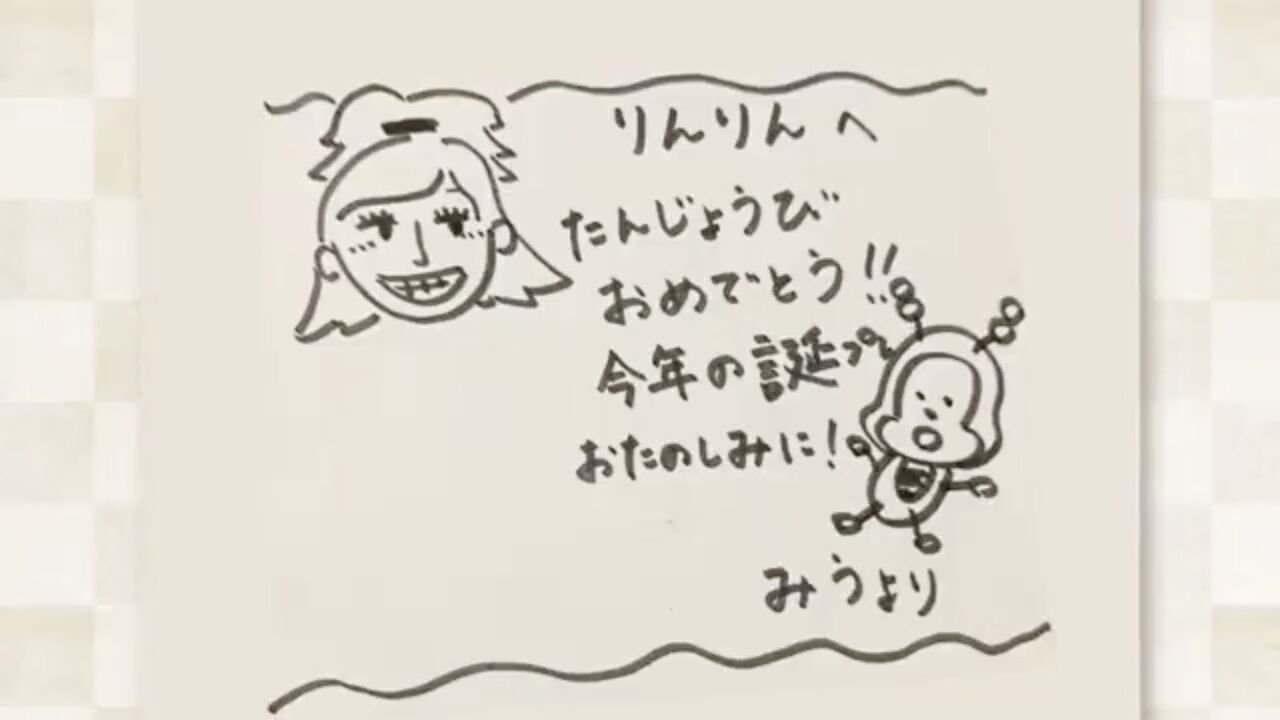 りんりんへ
たんじょうび
おめでとう!!
今年の誕プレ
おたのしみに!
みうより